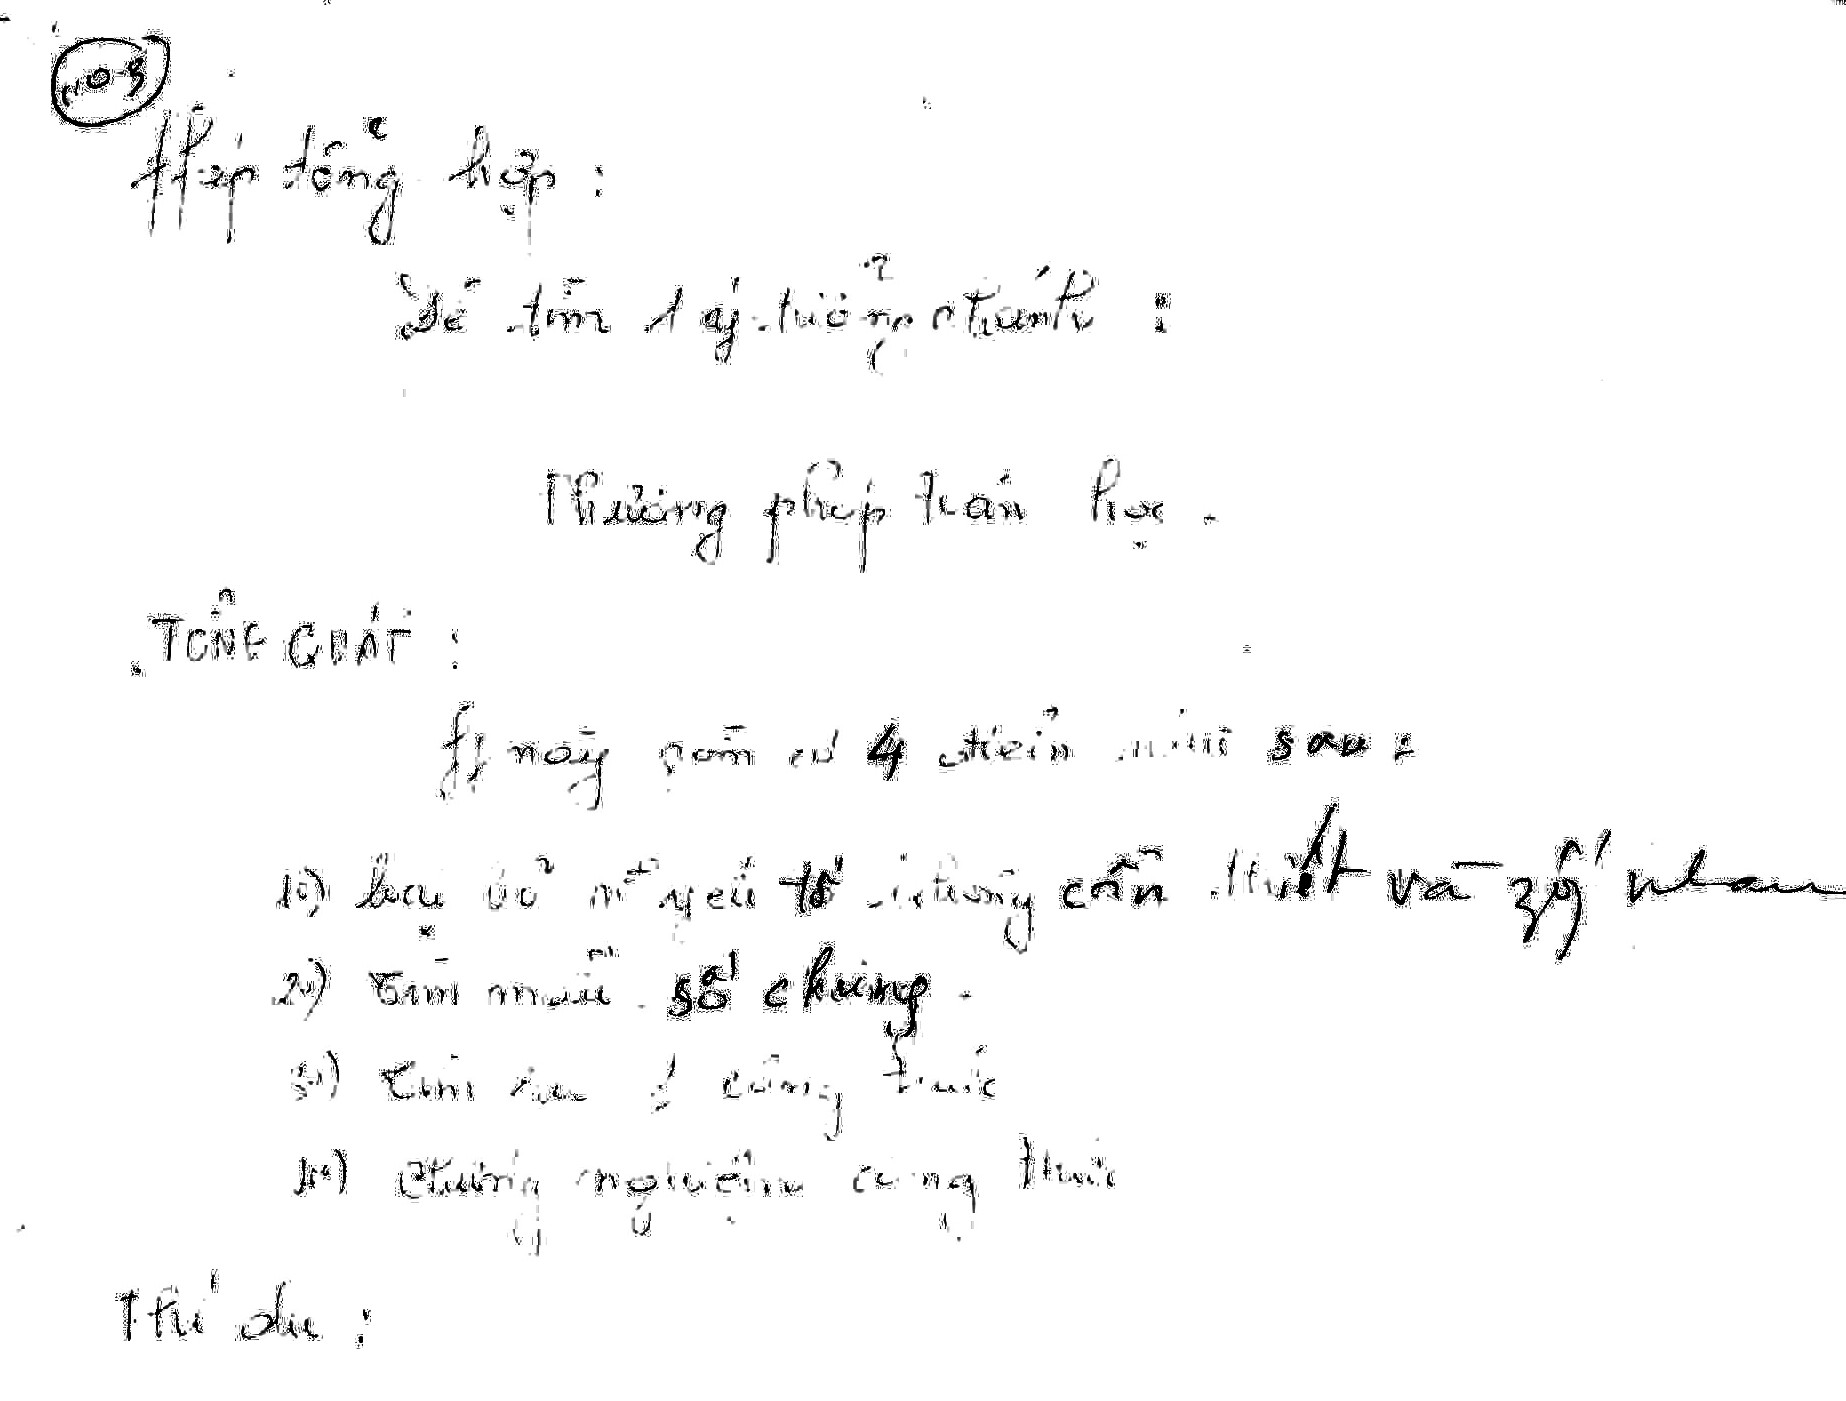 Phép tổng hợp :
Để tìm 1 ý tưởng chính :
Phương pháp toán học .
TỔNG QUÁT :
này gồm có 4 điểm sau :
1º) loại bỏ yếu tố không cần thiết và giống nhau
2º) Tìm mẫu số chung .
3º) Tìm ra 1 công thức
4º) Chứng nghiệm công thức
Thí dụ :